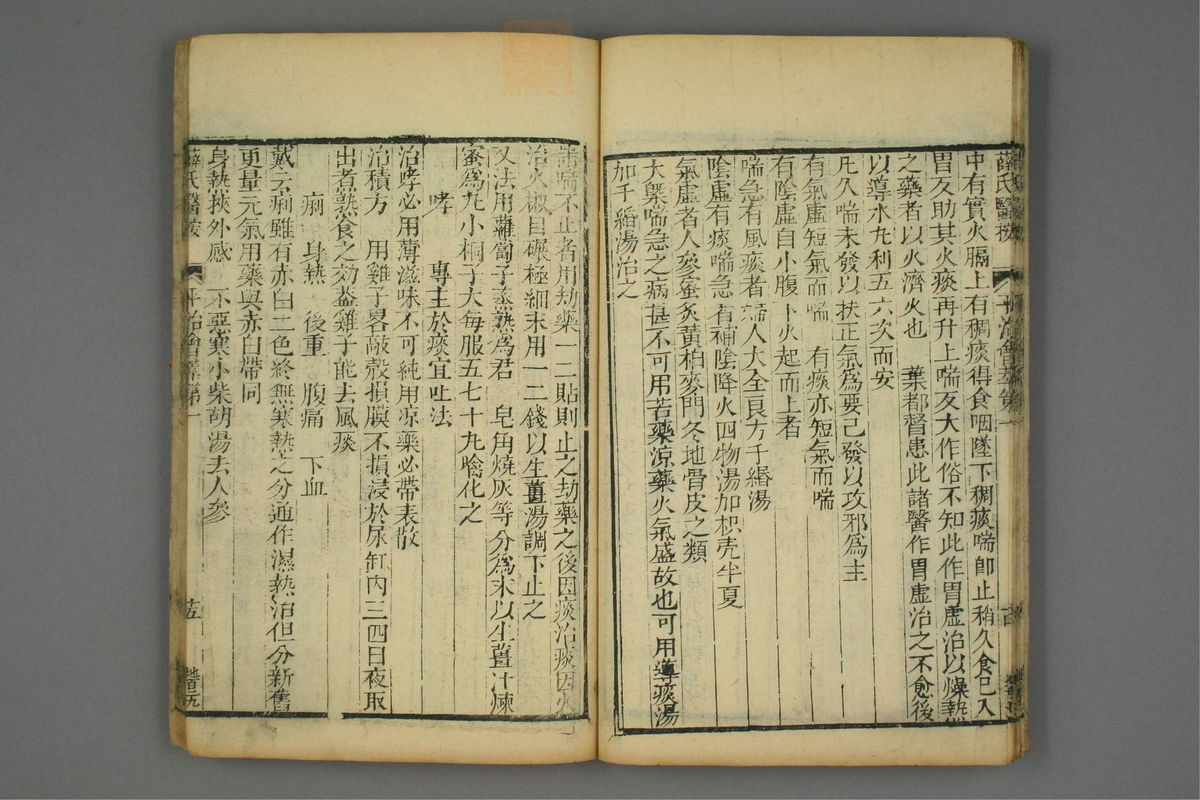 中有實火膈上有稠痰得食咽墜下稠痰喘卽止稍久食已入
胃反助其火痰再升上喘反大作俗不知此作胃虛治以燥熱
之藥者以火濟火也　葉都督患此諸醫作胃虛治之不愈後
以導水丸利五六次而安
凡久喘未發以扶正氣爲要已發以攻邪爲主
有氣虛短氣而喘　有痰亦短氣而喘
有陰虛自小腹下火起而上者
喘急有風痰者婦人大全良方千緡湯
陰虛有痰喘急者補陰降火四物湯加枳壳半夏
氣虛者人參蜜炙黃栢麥門冬地骨皮之類
大槩喘急之病甚不可用苦藥涼藥火氣盛故也可用導痰湯
加千緡湯治之
諸喘不止者用劫藥一二貼則止之劫藥之後因痰治痰因火
治火椒目碾極細末用一二錢以生薑湯調下止之
又法用蘿蔔子蒸熟爲君　皂角燒灰等分爲末以生薑汁煉
蜜爲丸小桐子大每服五七十丸噙化之
哮　專主於痰宜吐法
治哮必用薄滋味不可純用凉藥必帶表散
治積方　用雞子畧敲殼損膜不損浸於尿缸內三四日夜取
出煮熟食之効葢雞子能去風痰
痢　身熱　後重　腹痛　下血
戴云痢雖有赤白二色終無寒熱之分通作濕熱治但分新舊
更量元氣用藥與赤白帶同
身熱挾外感　不惡寒小柴胡湯去人參
薛氏醫按　平治會萃第一